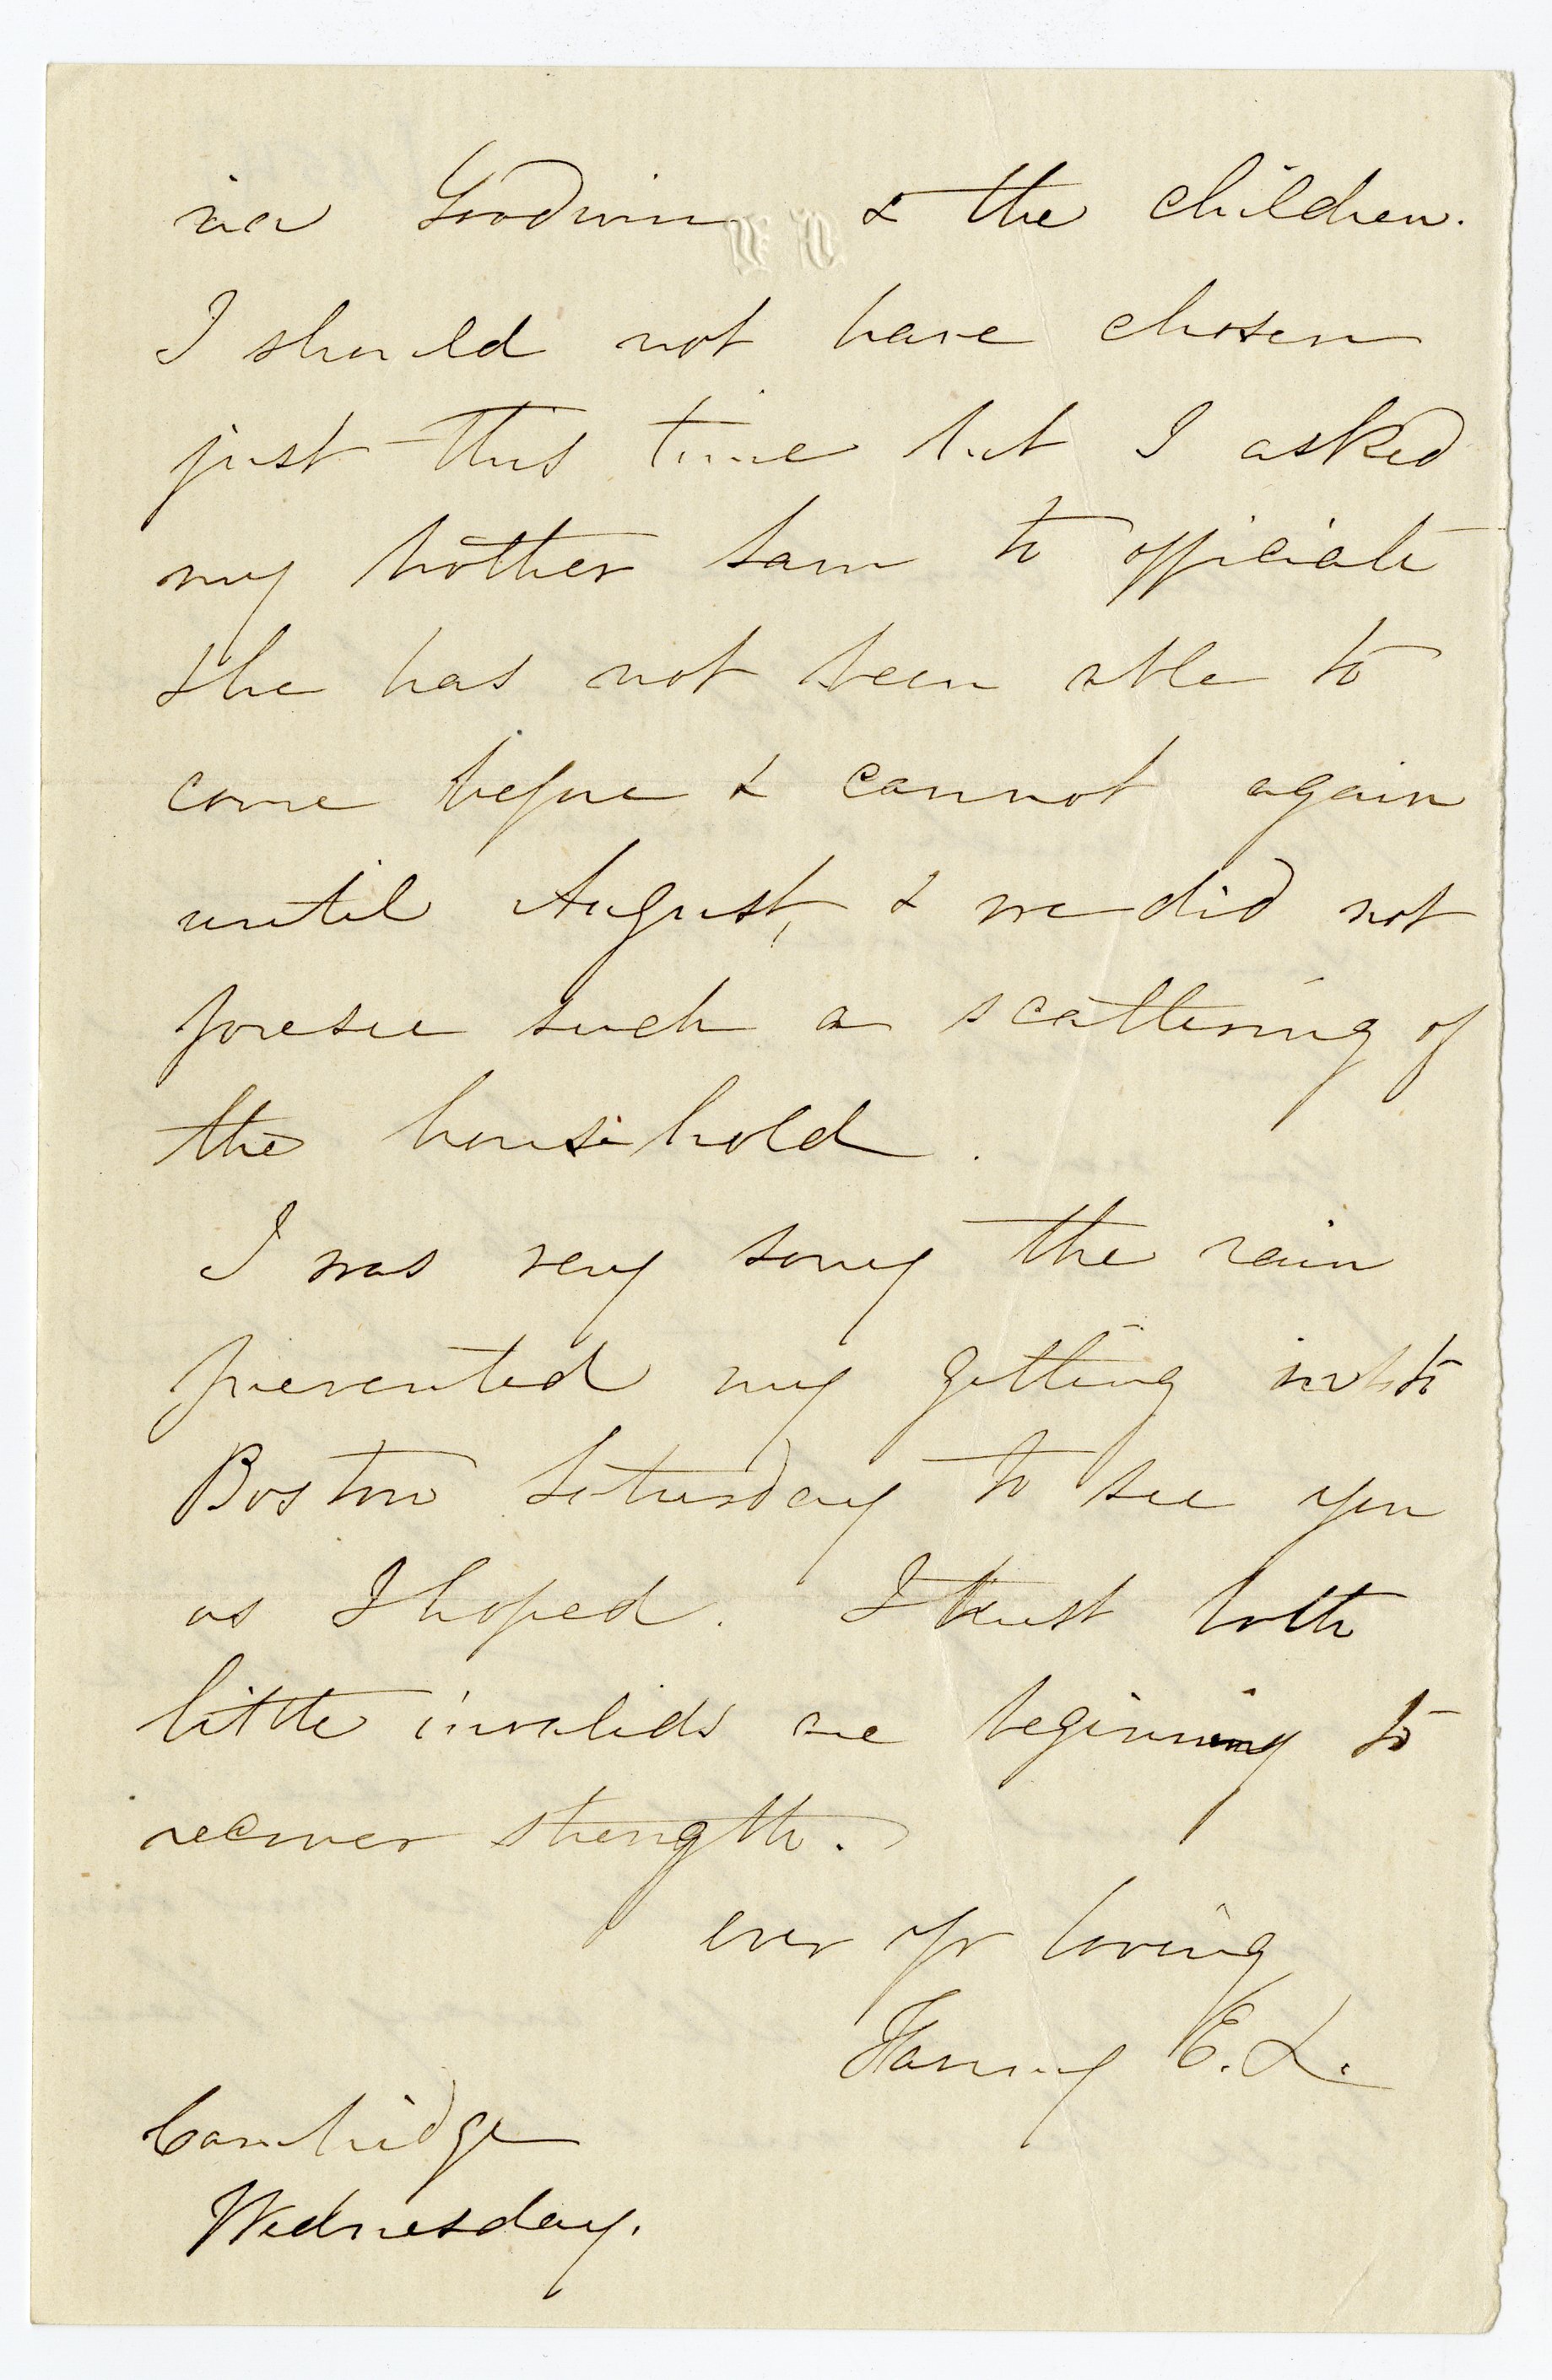 Goodwin & the children.
I should not have chosen
just this time but I asked
my brother Sam to officiate
& he has not been able to
come before & cannot again
until August, & we did not
foresee such a scattering of
the household.
I was very sorry the rain
prevented my getting into
Boston Saturday to see you
as I hoped. I trust both
little invalids are beginning to
recover strength.
ever yr loving
Fanny E. L.
Cambridge
Wednesday.